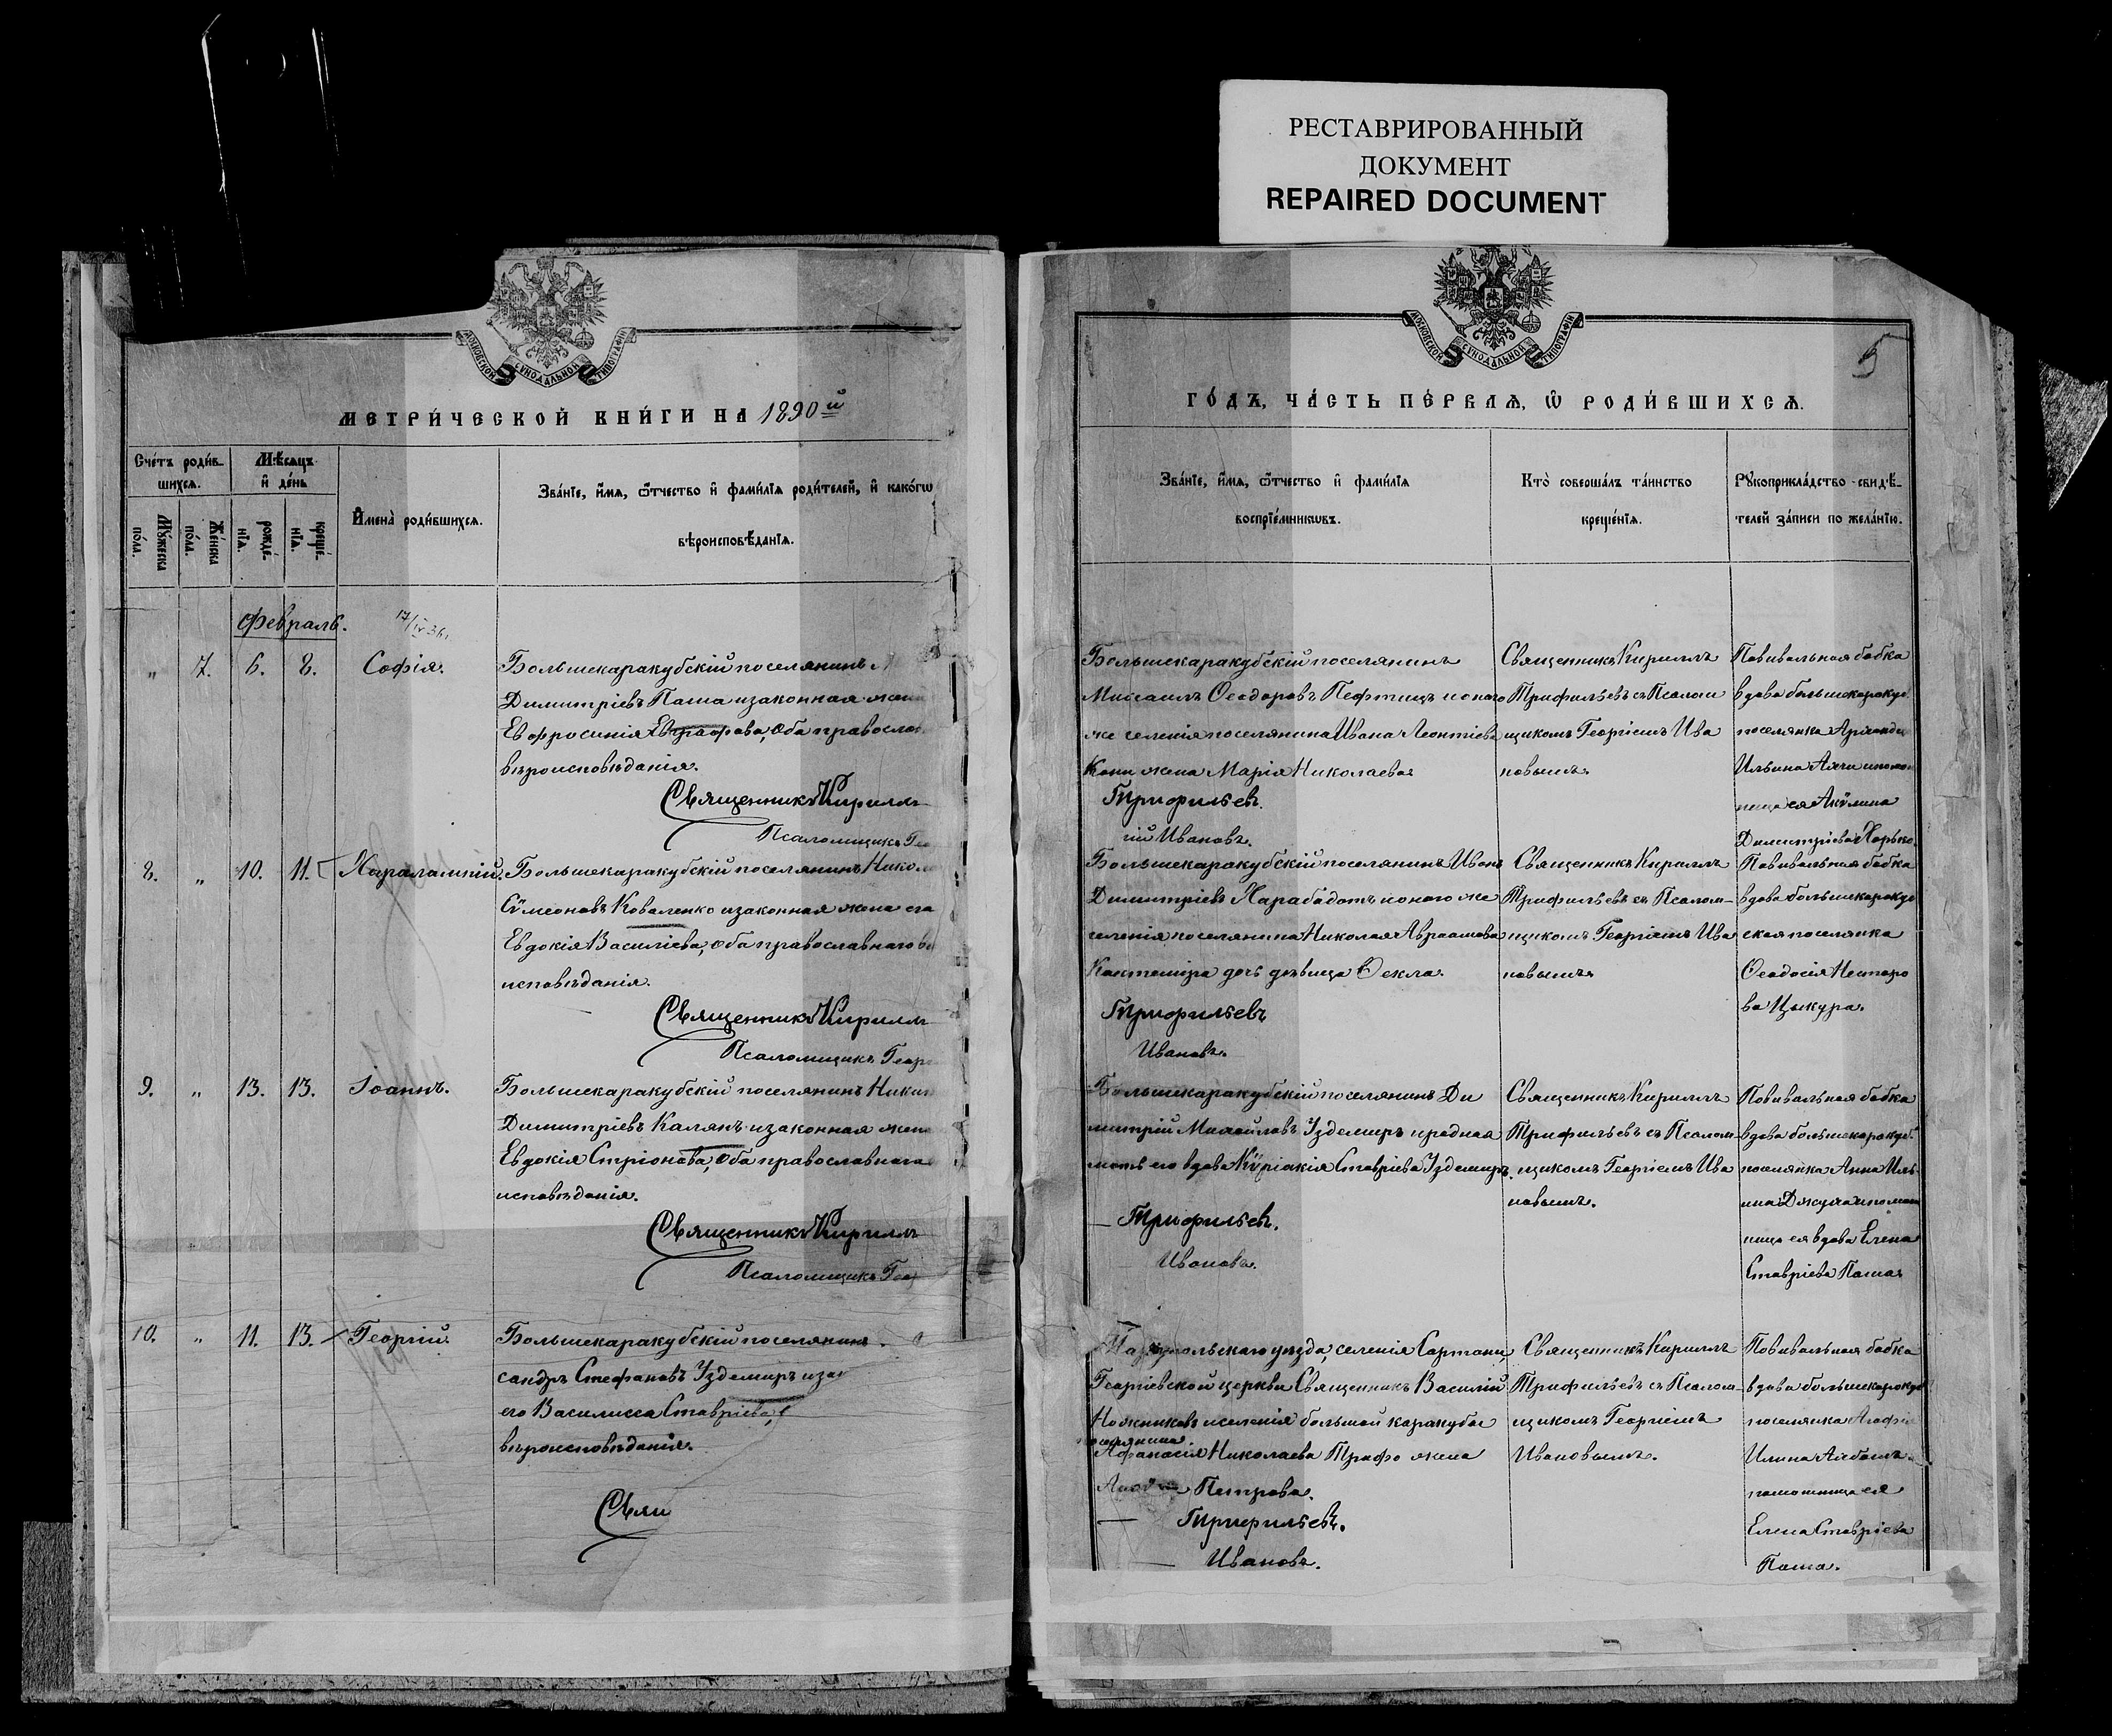 РЕСТАВРИРОВАННЫЙ
ДОКУМЕНТ
REPAIRED DOCUMENT
МОСКОВСКОЙ СѴНОДАЛЬНОЙ ТИПОГРАФІИ
МЕТРИ́ЧЕСКОЙ КНИ́ГИ НА 1890й
Сче́тъ роди́в-
шихсѧ.
Мѣ́сѧцъ
и҆ де́нь
Мꙋ́жеска
по́ла.
Же́нска
по́ла.
рожде́-
нїѧ.
креще́-
нїѧ.
И҆мена̀ роди́вшихсѧ.
Зва́нїе, и҆́мѧ, ѻ҆́тчество и҆ фами́лїѧ роди́телей, и҆ како́гѡ
вѣроисповѣ́данїѧ.
Февраль.
„ 7. 6. 8. Софія.
Большекаракубскій поселянинъ
Димитріевъ Паша и законная жена
Евфросинія Евграфова, оба православ
вѣроисповѣданія.
Священникъ Кириллъ
Псаломщикъ Гео
8. „ 10. 11. Харалампій.
Большекаракубскій поселянинъ Никол
Сѵмеоновъ Коваленко и законная жена его
Евдокія Василіева, оба православнаго вѣ
исповѣданія.
Священникъ Кириллъ
Псаломщикъ Геор
9. „ 13. 13. Іоаннъ.
Большекаракубскій поселянинъ Никит
Димитріевъ Калянъ и законная жен
Евдокія Стріонова, оба православнаго
исповѣданія.
Священникъ Кириллъ
Псаломщикъ Гео
10. „ 11. 13. Георгій.
Большекаракубскій поселянинъ
сандръ Стефановъ Уздемиръ и зак
его Василисса Ставріева,
вѣроисповѣданія.
Свящ
МОСКОВСКОЙ СѴНОДАЛЬНОЙ ТИПОГРАФІИ
5
ГО́ДЪ, ЧА́СТЬ ПЕ́РВАѦ, Ѡ҆ РОДИ́ВШИХСѦ.
Зва́нїе, и҆́мѧ, ѻ҆́тчество и҆ фами́лїѧ
воспрїе́мникѡвъ.
Кто̀ соверша́лъ та́инство
креще́нїѧ.
Рꙋкоприкла́дство свидѣ́-
телей за́писи по жела́нїю.
Большекаракубскій поселянинъ
Михаилъ Ѳеодоровъ Пефтицъ и оного
же селенія поселянина Ивана Леонтіева
Кони жена Марія Николаева
Трифильевъ.
гій Ивановъ.
Священникъ Кириллъ
Трифильевъ съ Псалом
щикомъ Георгіемъ Ива
новымъ.
Повивальная бабка
вдова большекаракуб
поселянка
Ильина
ница ея Акѵлина
Димитріева Хорько.
Большекаракубскій поселянинъ Иванъ
Димитріевъ Харабадотъ и оного же
селенія поселянина Николая Авраамова
Кантемира дочь дѣвица Ѳекла.
Трифильевъ
Ивановъ.
Священникъ Кириллъ
Трифильевъ съ Псалом-
щикомъ Георгіемъ Ива
новымъ.
Повивальная бабка
вдова большекаракуб
ская поселянка
Ѳеодосія Несторо
ва Цыкура.
Большекаракубскій поселянинъ Ди
митрій Михайловъ Уздемиръ и родная
мать его вдова Кѵріакія Ставріева Уздемиръ.
Трифильевъ.
Ивановъ.
Священникъ Кириллъ
Трифильевъ съ Псалом-
щикомъ Георгіемъ Ива
новымъ.
Повивальная бабка
вдова большекаракуб.
поселянка Анна Иль-
ина Джуха и помощ
ница ея вдова Елена
Ставріева Паша.
Маріупольскаго уѣзда, селенія Сартаны,
Георгіевской церкви Священникъ Василій
Ножниковъ и селенія большой каракубы
поселянина
Афанасія Николаева Трифо жена
Петрова.
Трифильевъ.
Ивановъ.
Священникъ Кириллъ
Трифильевъ съ Псалом-
щикомъ Георгіемъ
Ивановымъ.
Повивальная бабка
вдова большекаракуб
поселянка Агафія
Илина Албатъ
помощница ея
Елена Ставріева
Паша.